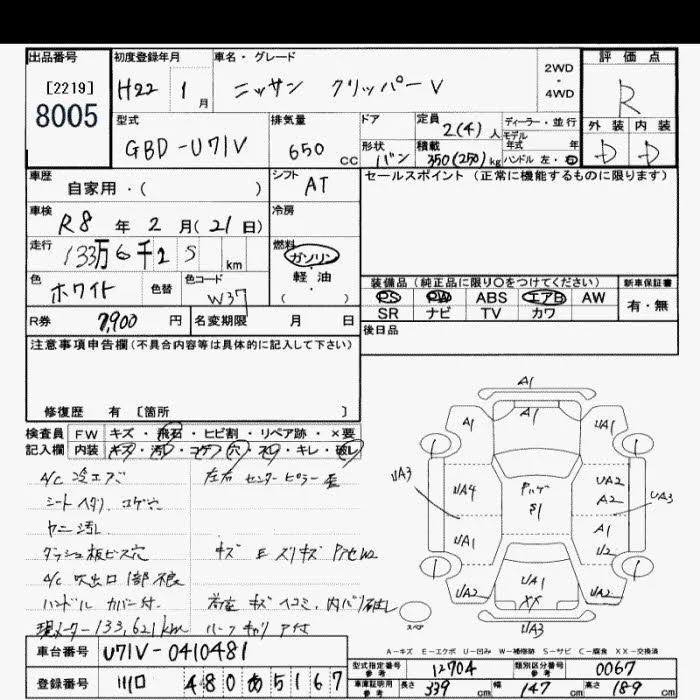 出品番号
[2219]
8005
初度登録年月
H22 1 月
車名・グレード
ニッサン クリッパーV
2WD
・
4WD
評価点
R
外装 内装
D D
型式
GBD-U71V
排気量
650 cc
ドア
形状
バン
定員
2(4) 人
積載
350(250) kg
ディーラー・並行
モデル
年式 年
ハンドル 左・右
車歴
自家用・( )
シフト
AT
車検
R8 年 2 月(21日)
冷房
走行
133万6千25 km
燃料
ガソリン
・
軽・油
( )
色
ホワイト
色替
色コード
W37
R券 7,900 円
名変期限 月 日
セールスポイント(正常に機能するものに限ります)
装備品(純正品に限り○をつけてください)
PS PW ABS エアB AW
SR ナビ TV カワ
新車保証書
有・無
後日品
注意事項申告欄(不具合内容等は具体的に記入して下さい)
修復歴 有 [箇所 ]
検査員
記入欄
FW キズ・飛石・ヒビ割・リペア跡・×要
内装 キズ・汚レ・コゲ・穴・ネジ・キレ・破レ
A/C 冷エズ
シート ヘタリ コゲ穴
ヤニ 汚レ
ダッシュ板ビス穴
A/C 吹出口 1部
ハンドル カバー付
現メーター 133,621km
左右 センターピラー
キズ E スリキズ
荷室 キズ ヘコミ、内バリ破レ
ルーフキャリア付
A1
A1
A1
UA1
UA3
UA4
UA1
UA2
S1
UA2
A2
A1
U2
UA3
UA1
XX
UA2
UA3
スペア
A-キズ E-エクボ U-凹み W-補修跡 S-サビ C-腐食 XX-交換済
車台番号 U71V-0410481
登録番号 川口 480 あ 5167
型式指定番号
参考
12704
類別区分番号
参考
0067
車庫証明用
参考
長さ 339 cm 幅 147 cm 高さ 189 cm